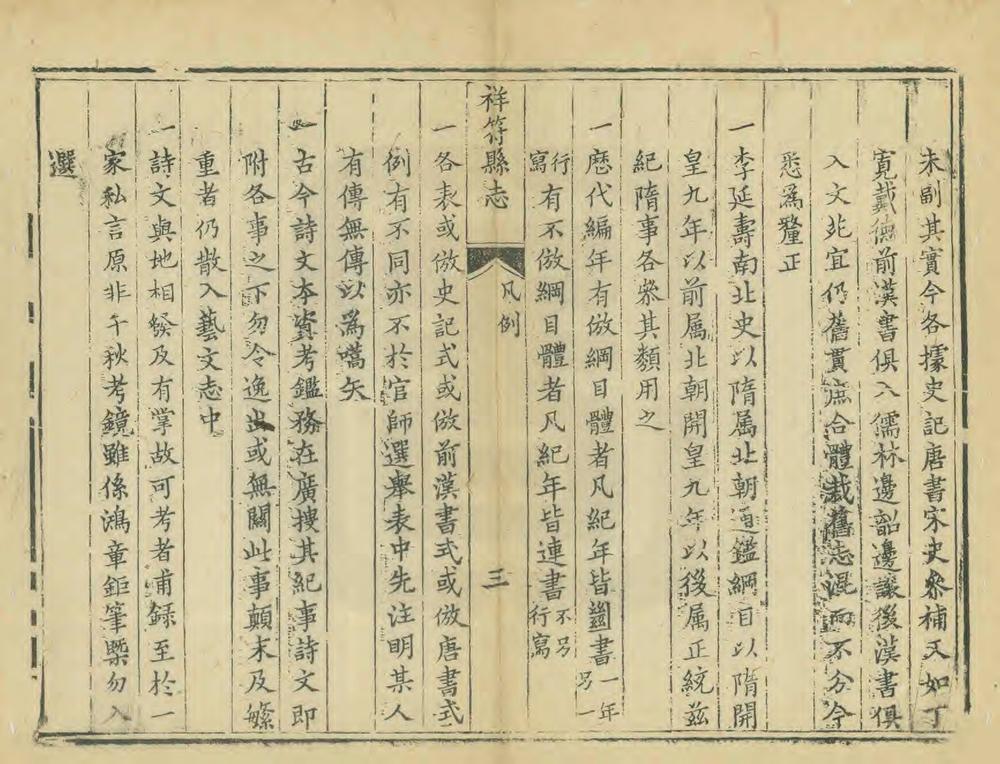 未副其實今各據史記唐書宋史叅補又如丁
寛戴德前漢書俱入儒林邊韶邊讓後漢書俱
入文苑宜仍舊貫庶合體裁舊志混而不分今
悉爲釐正
一李延壽南北史以隋属北朝通鑑綱目以隋開
皇九年以前属北朝開皇九年以後属正統兹
紀隋事各叅其類用之
一歷代編年有倣綱目體者凡紀年皆齟書一年另一
行寫有不倣綱目體者凡紀年皆連書不另行寫
祥符縣志 凡例 三
一各表或倣史記式或倣前漢書式或倣唐書式
例有不同亦不於官師選舉表中先注明某人
有傳無傳以為嚆矢
一古今詩文本資考鑑務在廣搜其紀事詩文即
附各事之下勿令逸出或無關此事顛末及繁
重者仍散入藝文志中
一詩文與地相發及有掌故可考者甫録至於一
家私言原非千秋考鏡雖係鴻章鉅筆槩勿入
選